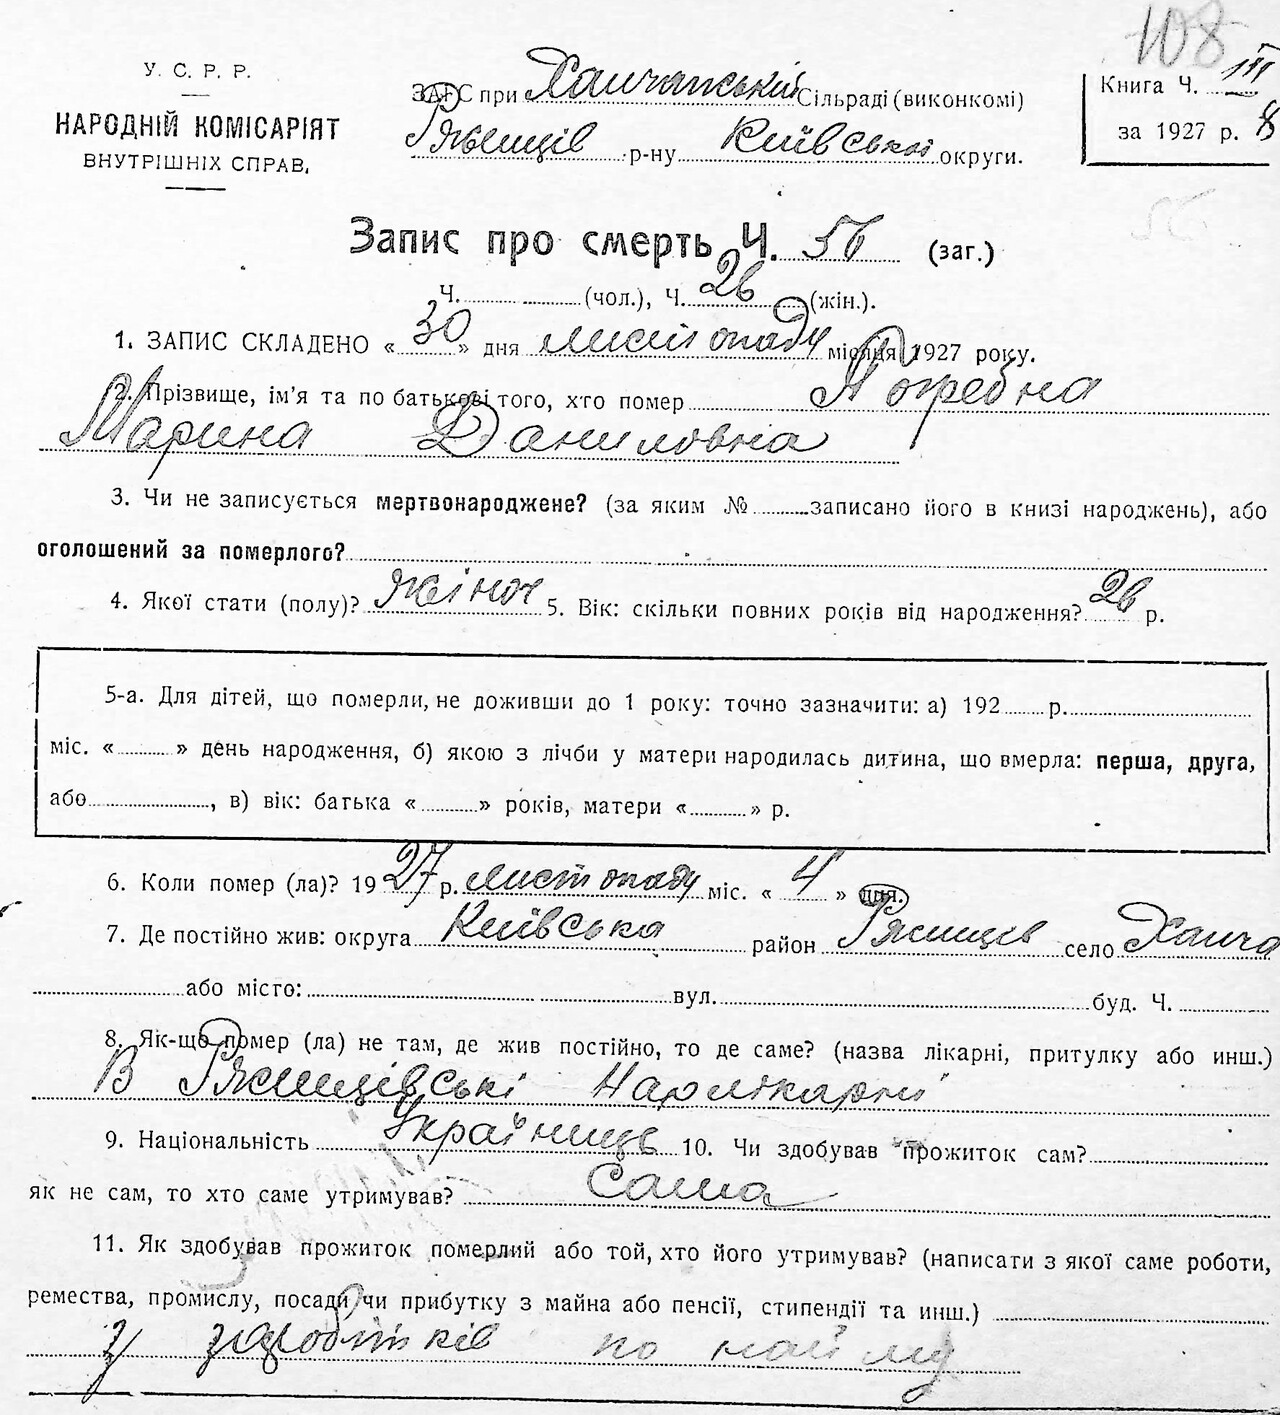 108
У. С. Р. Р.
НАРОДНІЙ КОМІСАРІЯТ
ВНУТРІШНІХ СПРАВ.
ЗАГС при Ханчанській Сільраді (виконкомі)
Ржищів р-ну Київської округи.
Книга Ч. III
за 1927 р. 8
Запис про смерть Ч. 56 (заг.)
Ч. (чол.), Ч. 26 (жін.).
1. ЗАПИС СКЛАДЕНО « 30 » дня листопаду місяця 1927 року.
2. Прізвище, ім'я та по батькові того, хто помер Погребна
Марина Даниловна
3. Чи не записується мертвонароджене? (за яким № записано його в книзі народжень), або
оголошений за померлого?
4. Якої стати (полу)? жіноч 5. Вік: скільки повних років від народження? 26 р.
5-а. Для дітей, що померли, не доживши до 1 року: точно зазначити: а) 192 р.
міс. « » день народження, б) якою з лічби у матери народилась дитина, що вмерла: перша, друга,
або , в) вік: батька « » років, матери « » р.
6. Коли помер (ла)? 1927 р. листопаду міс. « 4 » дня.
7. Де постійно жив: округа Київська район Ржищев село Ханча
або місто: вул. буд. Ч.
8. Як-що помер (ла) не там, де жив постійно, то де саме? (назва лікарні, притулку або инш.)
В Ржищівські Нарлікарні
9. Національність Українець 10. Чи здобував прожиток сам?
як не сам, то хто саме утримував? Сама
11. Як здобував прожиток померлий або той, хто його утримував? (написати з якої саме роботи,
ремества, промислу, посади чи прибутку з майна або пенсії, стипендії та инш.)
З заробітків по найму